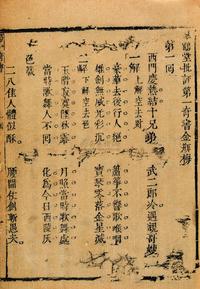 鶴堂批評第一奇書金瓶梅
第一回
西門慶熱結十兄弟　武二郎冷遇親哥嫂
一解 上解空去財
豪華去後行人絕　簫箏不響歌喉咽
雄劍無威光彩沉　寶琴零落金星滅
一解 下解空去色
玉階寂寞墜秋露　月照當時歌舞處
當時歌舞人不回　化為今日西陵灰
色箴
二八佳人體似酥　腰間仗劍斬愚夫